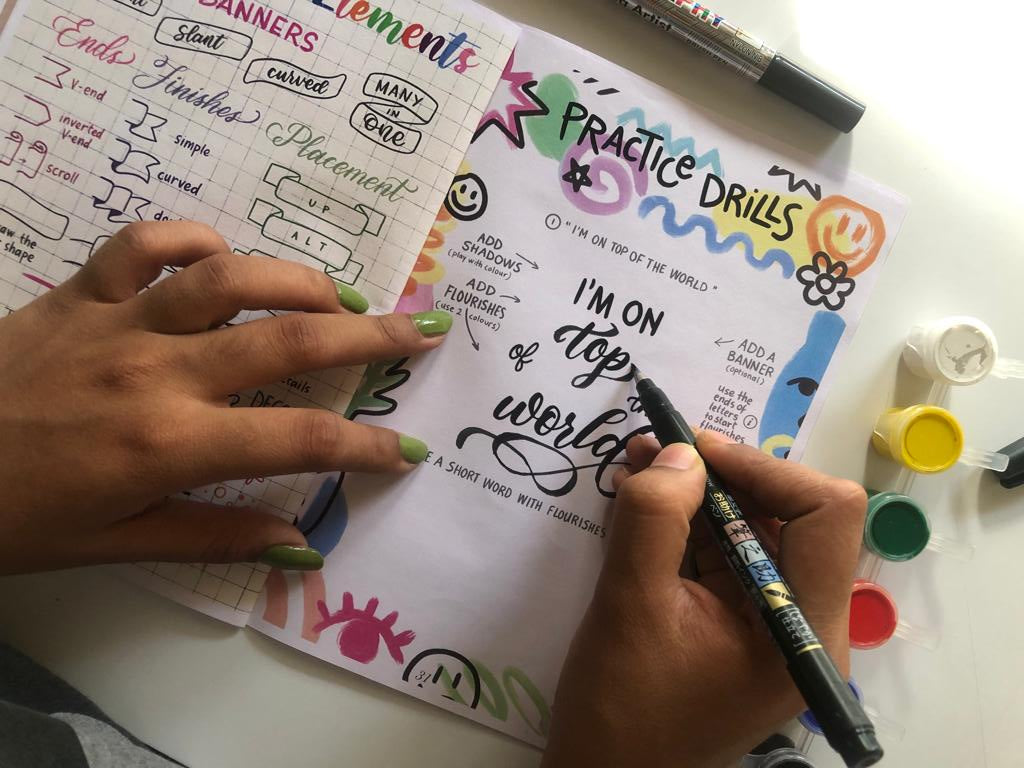 Elements
BANNERS
slant
curved
MANY
IN
one
Ends
V-end
inverted
V-end
scroll
Finishes
simple
curved
Placement
UP
ALT
PRACTICE DRILLS
① "I'M ON TOP OF THE WORLD"
ADD
SHADOWS
(play with colour)
ADD
FLOURISHES
(use 2 colours)
I'M ON
top
of
world
ADD A
BANNER
(optional)
use the
ends of
letters
to start
flourishes
A SHORT WORD WITH FLOURISHES
31